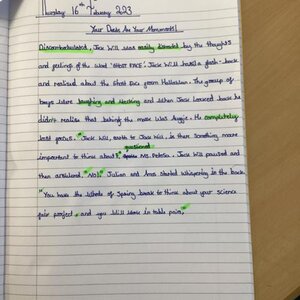 Thursday 16th February 223
Your Deeds Are Your Monuments!
Discombobulated, Jack Will was easily distracted by the thoughts
and feelings of the word 'GHOST FACE'. Jack Will had a flash-back
and realised about the Ghost Face from Halloween. The group of
boys were laughing and mocking and when Jack looked back he
didn't realise that behind the mask was Auggie. He completely
lost focus. "Jack Will, earth to Jack Will, is there something more
questioned
important to think about?" Ms. Petosa. Jack Will paused and
then answered, "No!" Julian and Amos started whispering in the back.
"You have the whole of Spring break to think about your science
fair project, and you will work in table pairs,"